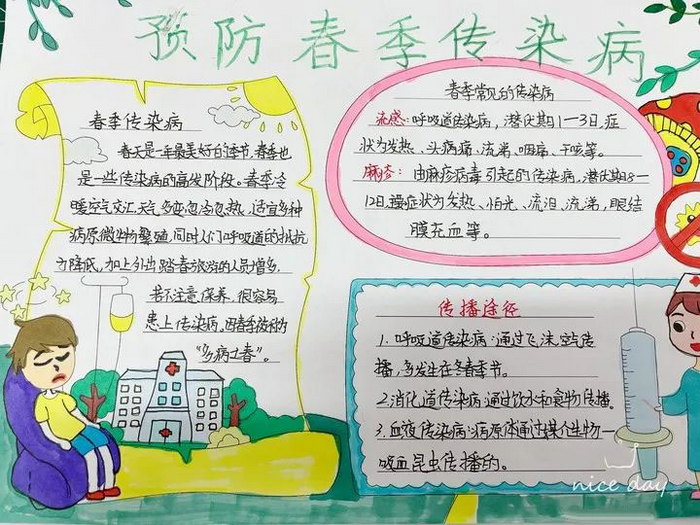 预防春季传染病
春季传染病
春天是一年最美好的季节,春季也
是一些传染病的高发阶段。春季冷
暖空气交汇,天气多变,忽冷忽热,适宜多种
病原微生物繁殖,同时人们呼吸道的抵抗
力降低,加上外出踏春旅游的人员增多,
若不注意保养,很容易
患上传染病,因春季被称为
“多病之春”。
春季常见的传染病
流感:呼吸道传染病,潜伏期1—3日,症
状为发热、头病痛、流涕、咽痛、干咳等。
麻疹:由麻疹病毒引起的传染病,潜伏期8—
12日,症状为发热、怕光、流泪、流涕,眼结
膜充血等。
传播途径
1.呼吸道传染病:通过飞沫,空气传
播,多发生在冬春季节。
2.消化道传染病:通过饮水和食物传播。
3.血液传染病:病原体通过媒介生物—
吸血昆虫传播的。
nice day